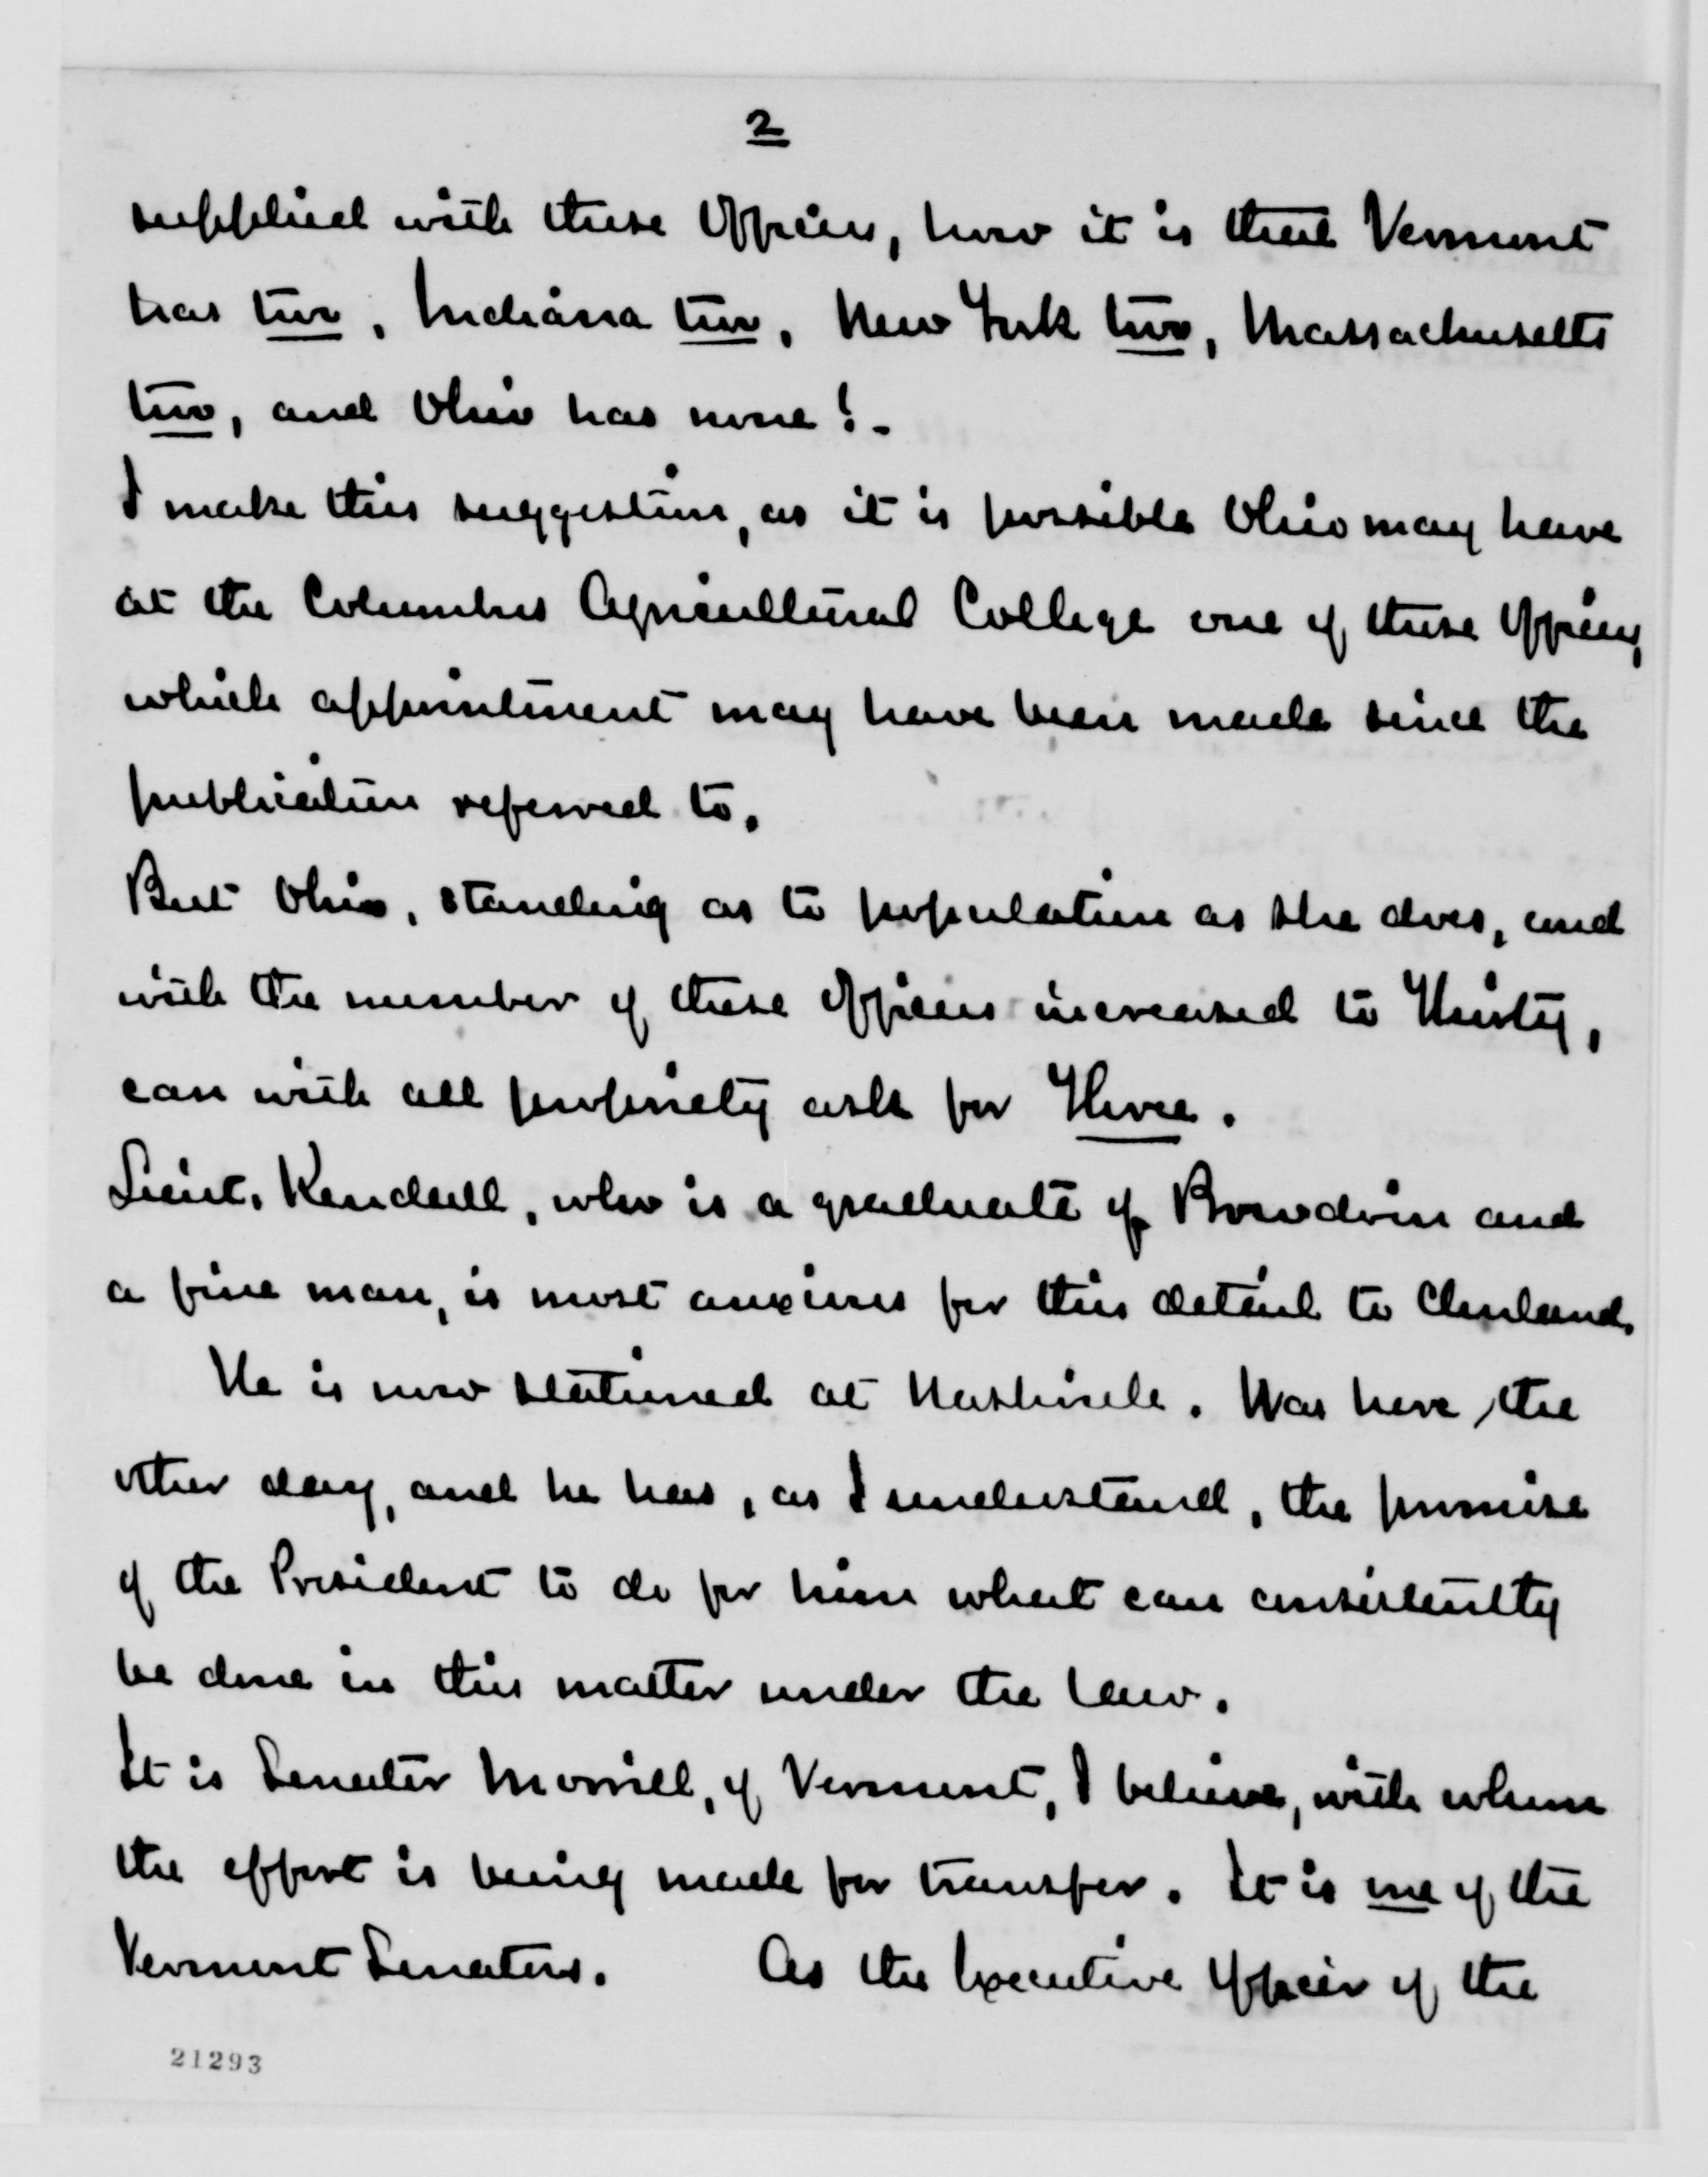 2
supplied with these Officers, how it is that Vermont
has two, Indiana two, New York two, Massachusetts
two, and Ohio has none!-
I make this suggestion, as it is possible Ohio may have
at the Columbus Agricultural College one of these Officers,
which appointment may have been made since the
publication referred to.
But Ohio, standing as to population as she does, and
with the number of these Officers increased to Thirty,
can with all propriety ask for Three.
Lieut. Kendall, who is a graduate of Bowdoin and
a fine man, is most anxious for this detail to Cleveland.
He is now stationed at Nashville. Was here, the
other day, and he has, as I understand, the promise
of the President to do for him what can consistently
be done in this matter under the law.
It is Senator Morrill, of Vermont, I believe, with whom
the effort is being made for transfer. It is one of the
Vermont Senators. As the Executive Officer of the
21293